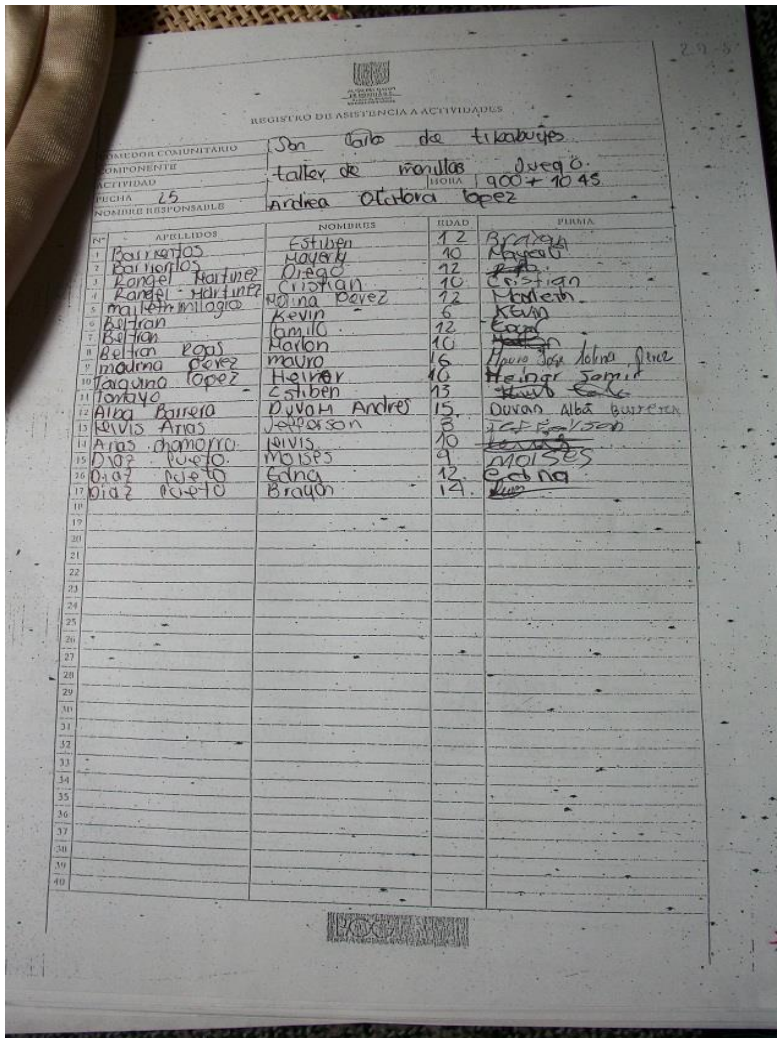 REGISTRO DE ASISTENCIA A ACTIVIDADES
COMEDOR COMUNITARIO San Carlo de
COMPONENTE
ACTIVIDAD taller de manillas Juego.
FECHA 25 HORA 900 + 10 45
NOMBRE RESPONSABLE Andrea lopez
Nº APELLIDOS NOMBRES EDAD FIRMA
1 Barrientos Estiben 12 Brayan
2 Barrientos Mayerly 10 Mayerli
3 Rangel Martinez Diego 12
4 Rangel Martinez Cristian 10 Cristian
5 maileth milagro Molina Perez 12 Maileth
6 Beltran Kevin 6 KEVIN
7 Beltran Camilo 12
8 Beltran Marlon 10
9 Perez mauro 16 Mauro Jose Molina Perez
10 lopez Heiner 10 Heiner Samir
11 Estiben 13
12 Alba Barrera Duvan Andres 15. Duvan Alba Barrera
13 Arias Jefferson 8 Jefferson
14 Arias chamorro 10
15 Diaz MOISES 9 MOISES
16 Diaz Edna 12 Edna
17 Diaz Brayan 14.
18
19
20
21
22
23
24
25
26
27
28
29
30
31
32
33
34
35
36
37
38
39
40